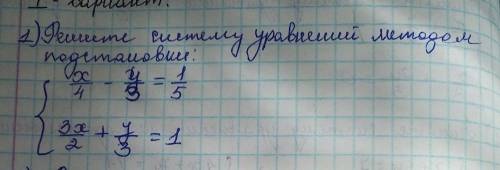 1 - вариант.
1) Решите систему уравнений методом
подстановки:
x/4 - y/3 = 1/5
3x/2 + y/3 = 1